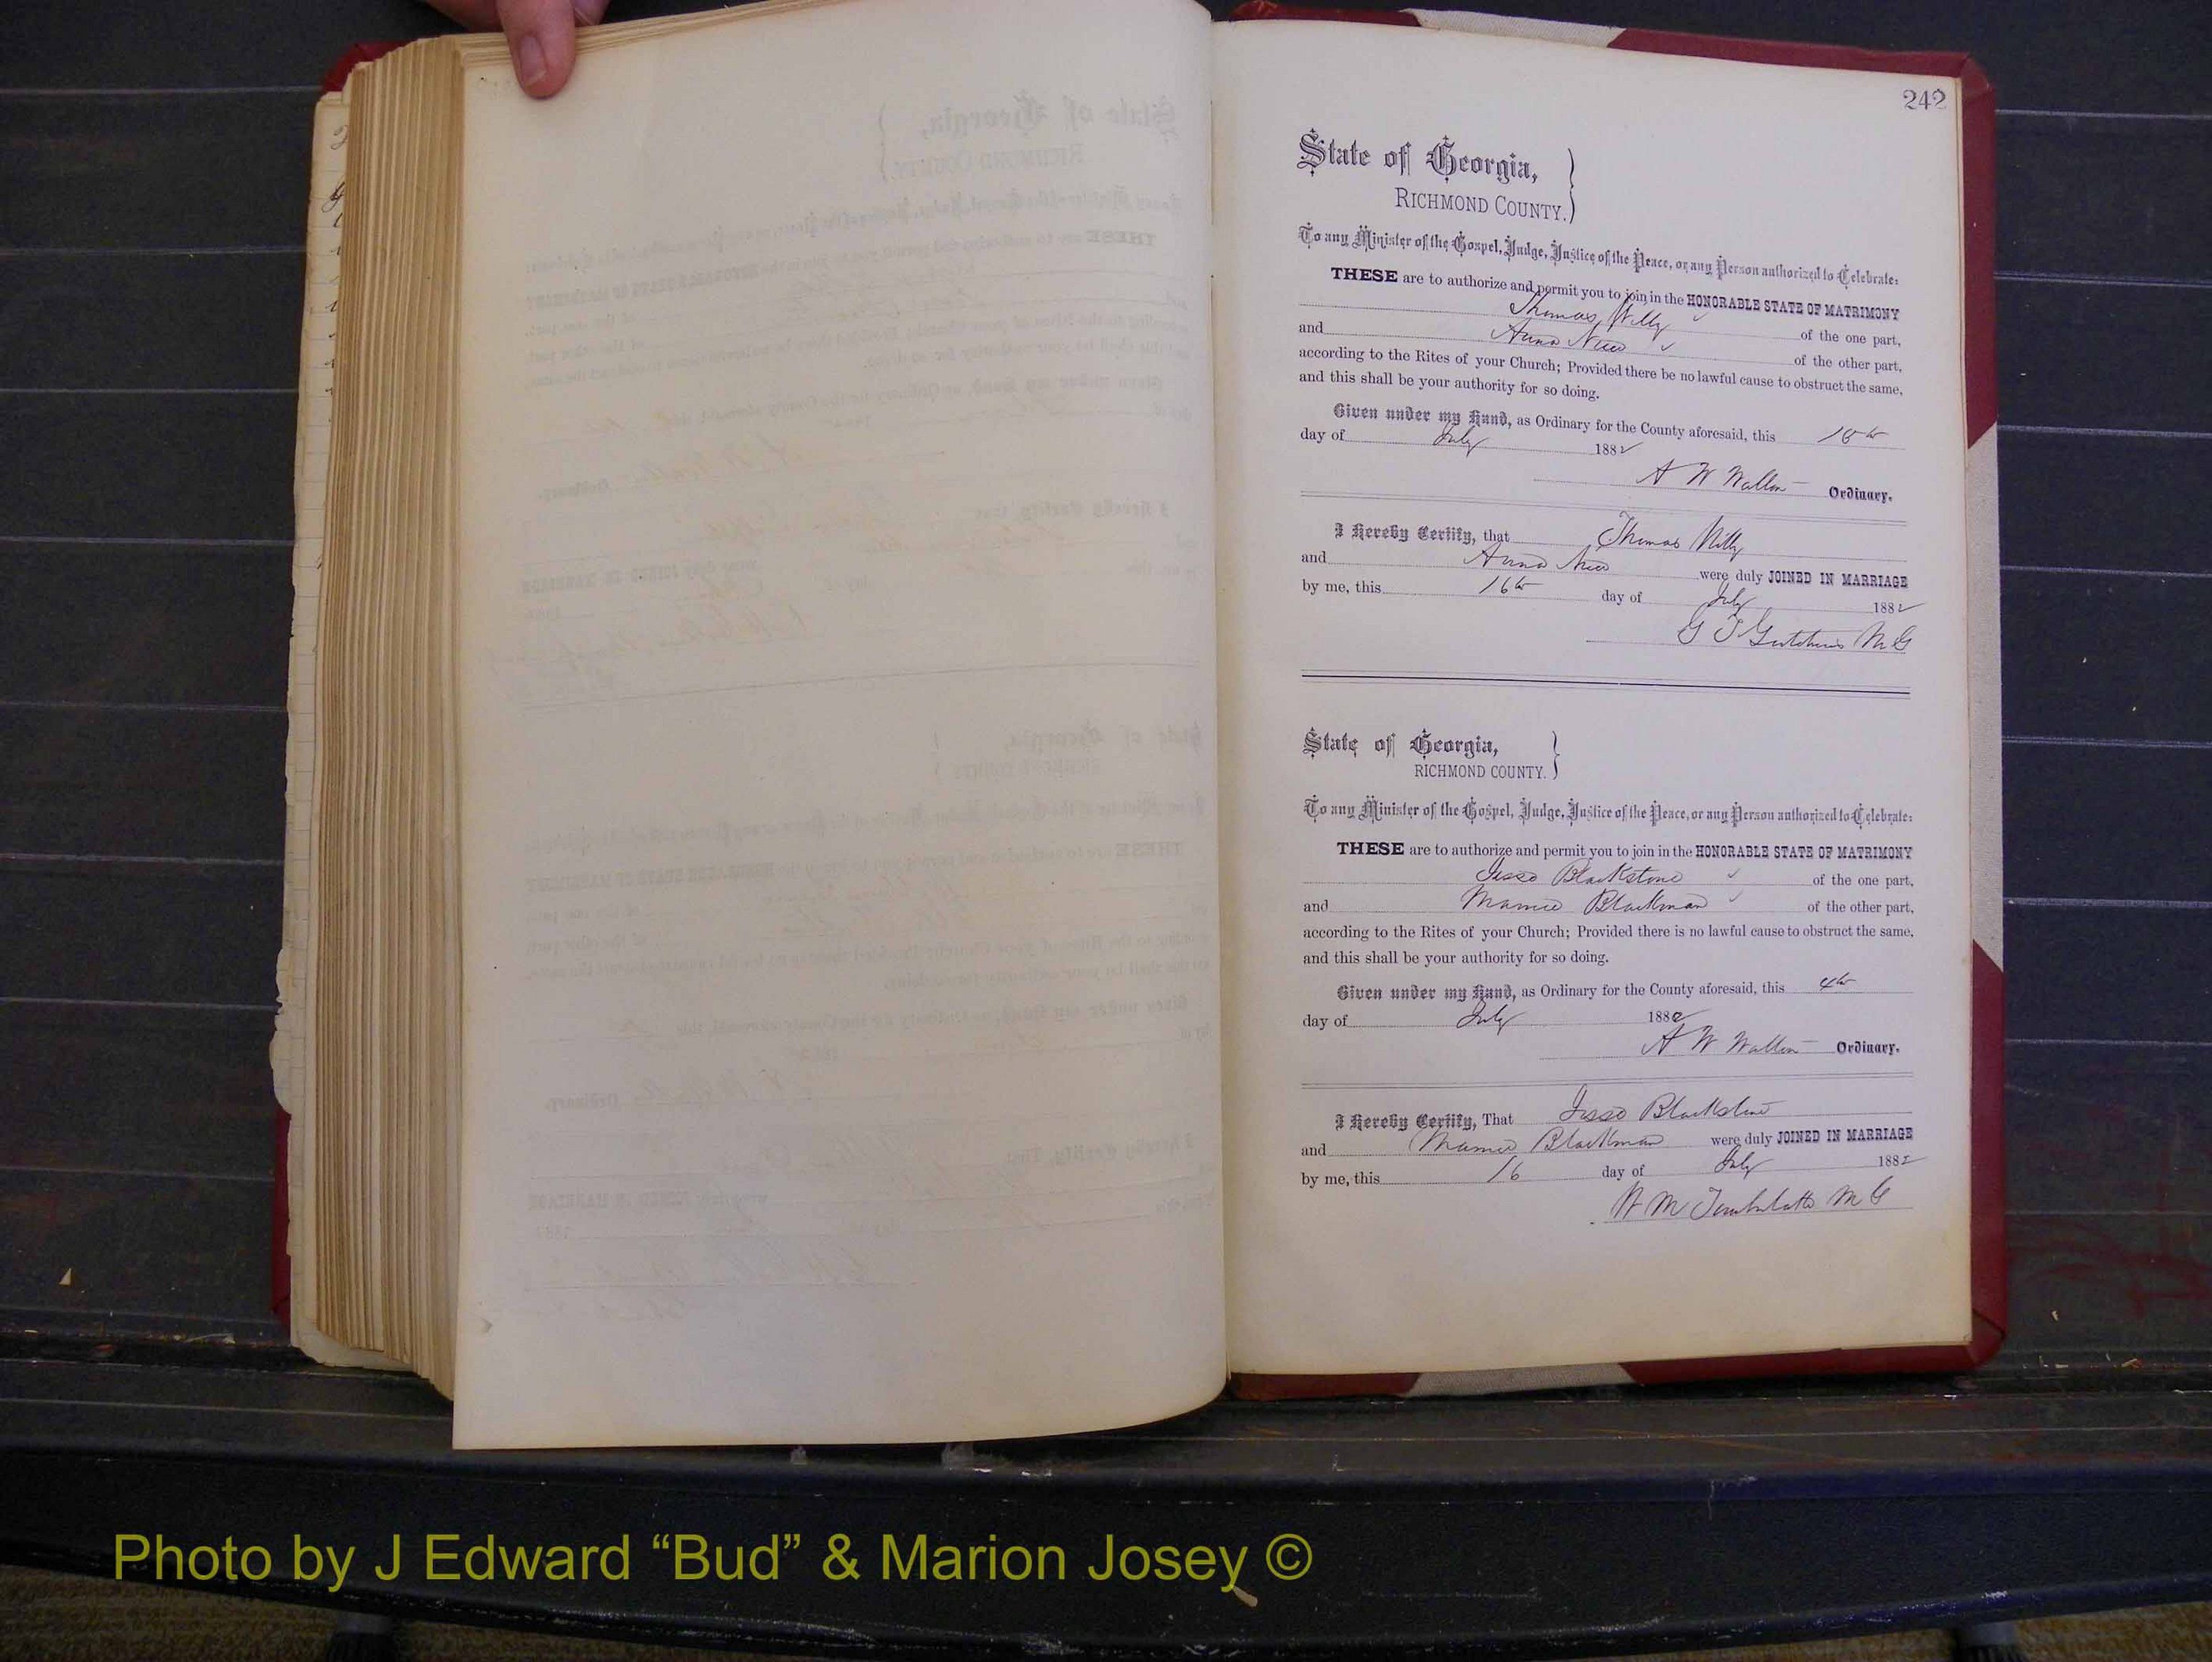 242
State of Georgia,
RICHMOND COUNTY.
To any Minister of the Gospel, Judge, Justice of the Peace, or any Person authorized to Celebrate:
THESE are to authorize and permit you to join in the HONORABLE STATE OF MATRIMONY
Thomas of the one part,
and Anna of the other part,
according to the Rites of your Church; Provided there be no lawful cause to obstruct the same,
and this shall be your authority for so doing.
Given under my Hand, as Ordinary for the County aforesaid, this
day of July 1882
A W Walton Ordinary.
I Hereby Certify, that Thomas
and Anna were duly JOINED IN MARRIAGE
by me, this 16th day of July 1882
G T M G
State of Georgia,
RICHMOND COUNTY.
To any Minister of the Gospel, Judge, Justice of the Peace, or any Person authorized to Celebrate:
THESE are to authorize and permit you to join in the HONORABLE STATE OF MATRIMONY
Jesse Blackstone of the one part,
and Mamie Blackman of the other part,
according to the Rites of your Church; Provided there is no lawful cause to obstruct the same,
and this shall be your authority for so doing.
Given under my Hand, as Ordinary for the County aforesaid, this 4th
day of July 1882
A W Walton Ordinary.
I Hereby Certify, That Jesse Blackstone
and Mamie Blackman were duly JOINED IN MARRIAGE
by me, this 16 day of July 1882
W M M G
Photo by J Edward “Bud” & Marion Josey ©